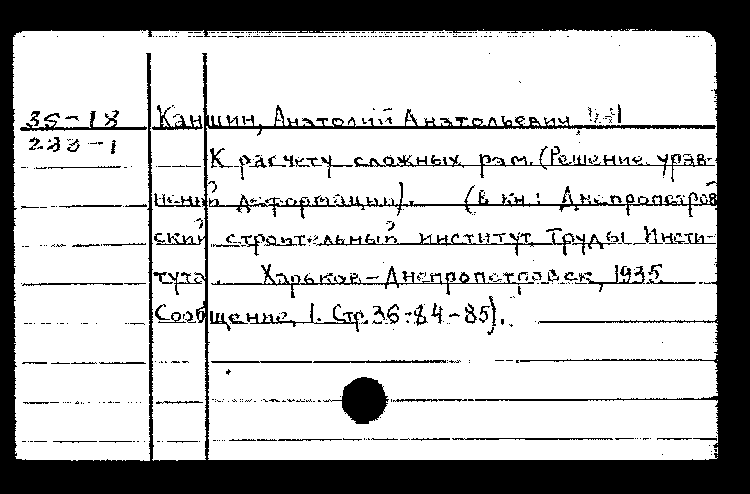 35-18 Каншин, Анатолий Анатольевич,
233-1
К расчету сложных рам. (Решение урав-
нений деформации). (В кн.: Днепропетров
ский строительный институт. Труды Инсти-
тута. Харьков-Днепропетровск, 1935
Сообщение, 1. Стр. 36-84-85).